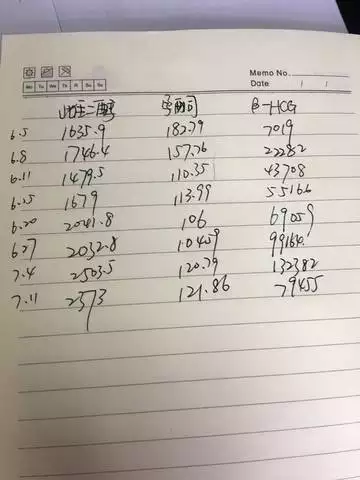 Memo No.
Mo Tu We Th Fr Sa Su Date / /
雌二醇 孕酮 β-HCG
6.5 1635.9 182.79 7019
6.8 1746.4 157.76 22282
6.11 1479.5 110.35 43708
6.15 1679 113.99 55166
6.20 2041.8 106 69059
6.27 2032.8 104.09
7.4 2503.5 120.79 132382
7.11 2373 121.86 79455